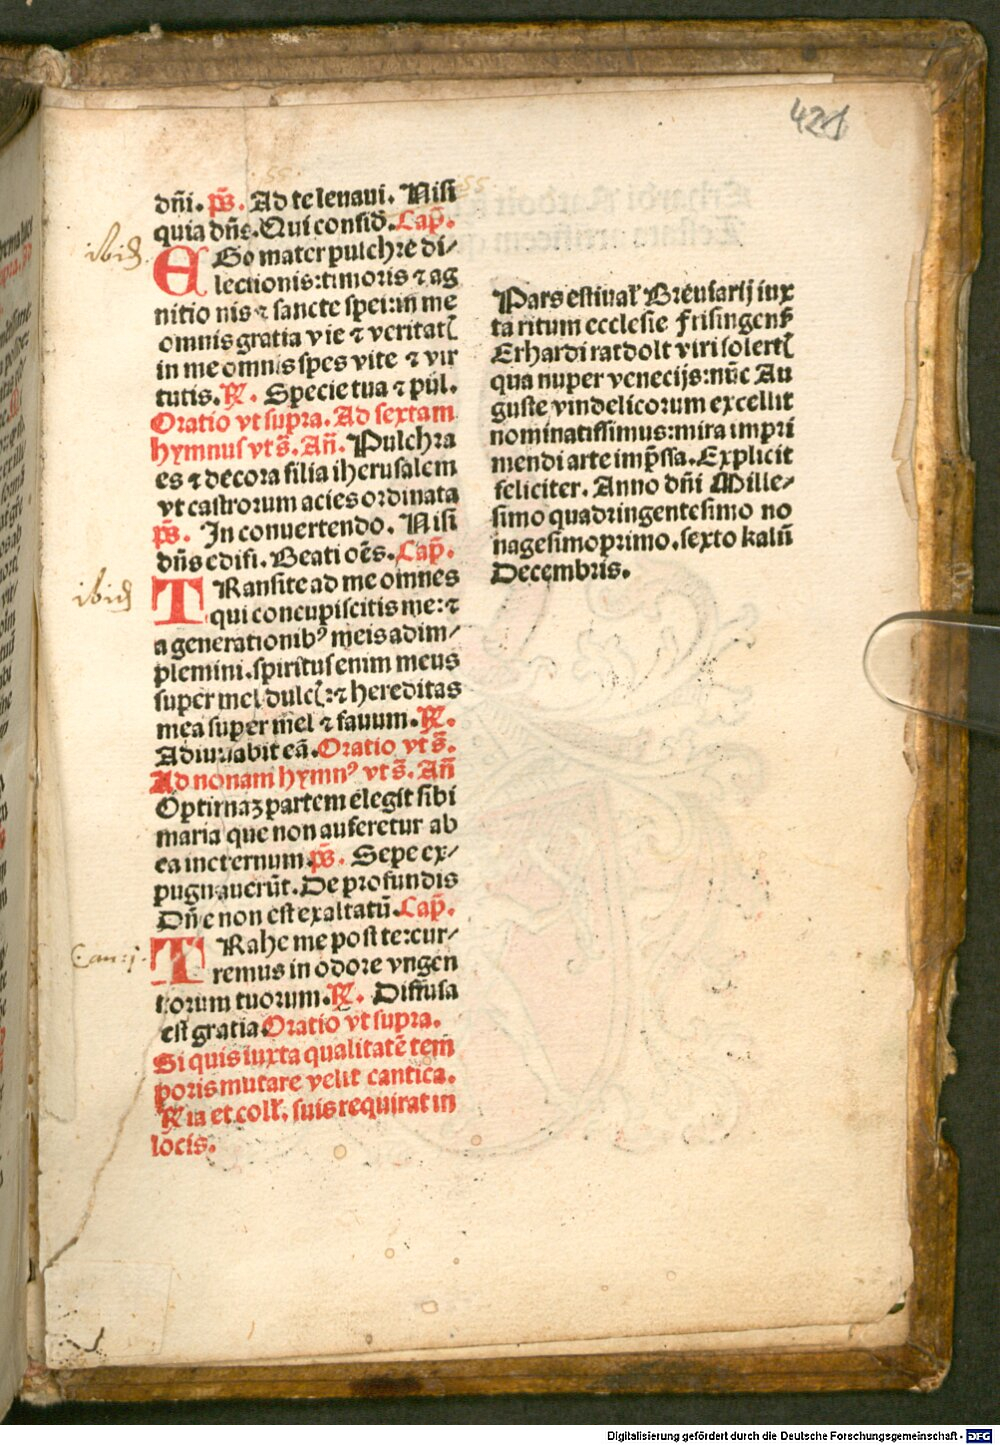 421
dñi. p̃s. Ad te leuaui. Nisi
quia dñs. Qui confid̃. Cap̃.
ibid̃
EGo mater pulchre di⸗
lectionis: timoris ⁊ ag
nitio nis ⁊ sancte spei: in me
omnis gratia vie ⁊ veritatꝭ
in me omnis spes vite ⁊ vir
tutis. R̃. Specie tua ⁊ pul̃.
Oratio vt supra. Ad sextam
hymnus vt s̃. Añ. Pulchra
es ⁊ decora filia iherusalem
vt castrorum acies ordinata
p̃s. In conuertendo. Nisi
dñs edifi. Beati oẽs. Cap̃.
ibid̃
TRansite ad me omnes
qui concupiscitis me: ⁊
a generationibꝰ meis adim⸗
plemini. spiritus enim meus
super mel dulcꝭ: ⁊ hereditas
mea super mel ⁊ fauum. R̃.
Adiuuabit eã. Oratio vt s̃.
Ad nonam hymnꝰ vt s̃. Añ
Optimaꝫ partem elegit sibi
maria que non auferetur ab
ea ineternum. p̃s. Sepe ex⸗
pugnauerũt. De profundis
Dñe non est exaltatũ. Cap̃.
Can: j.
TRahe me post te: cur⸗
remus in odore vngen
torum tuorum. R̃. Diffusa
est gratia. Oratio vt supra.
Si quis iuxta qualitatẽ tem
poris mutare velit cantica.
R̃ia et coll̃. suis requirat in
locis.
Pars estiual̃ Breuiarij iux
ta ritum ecclesie frisingens̃
Erhardi ratdolt viri solertꝭ
qua nuper venecijs: nũc Au
guste vindelicorum excellit
nominatissimus: mira impri
mendi arte imp̃ssa. Explicit
feliciter. Anno dñi Mille⸗
simo quadringentesimo no
nagesimoprimo. sexto kalñ
Decembris.
Digitalisierung gefördert durch die Deutsche Forschungsgemeinschaft - DFG